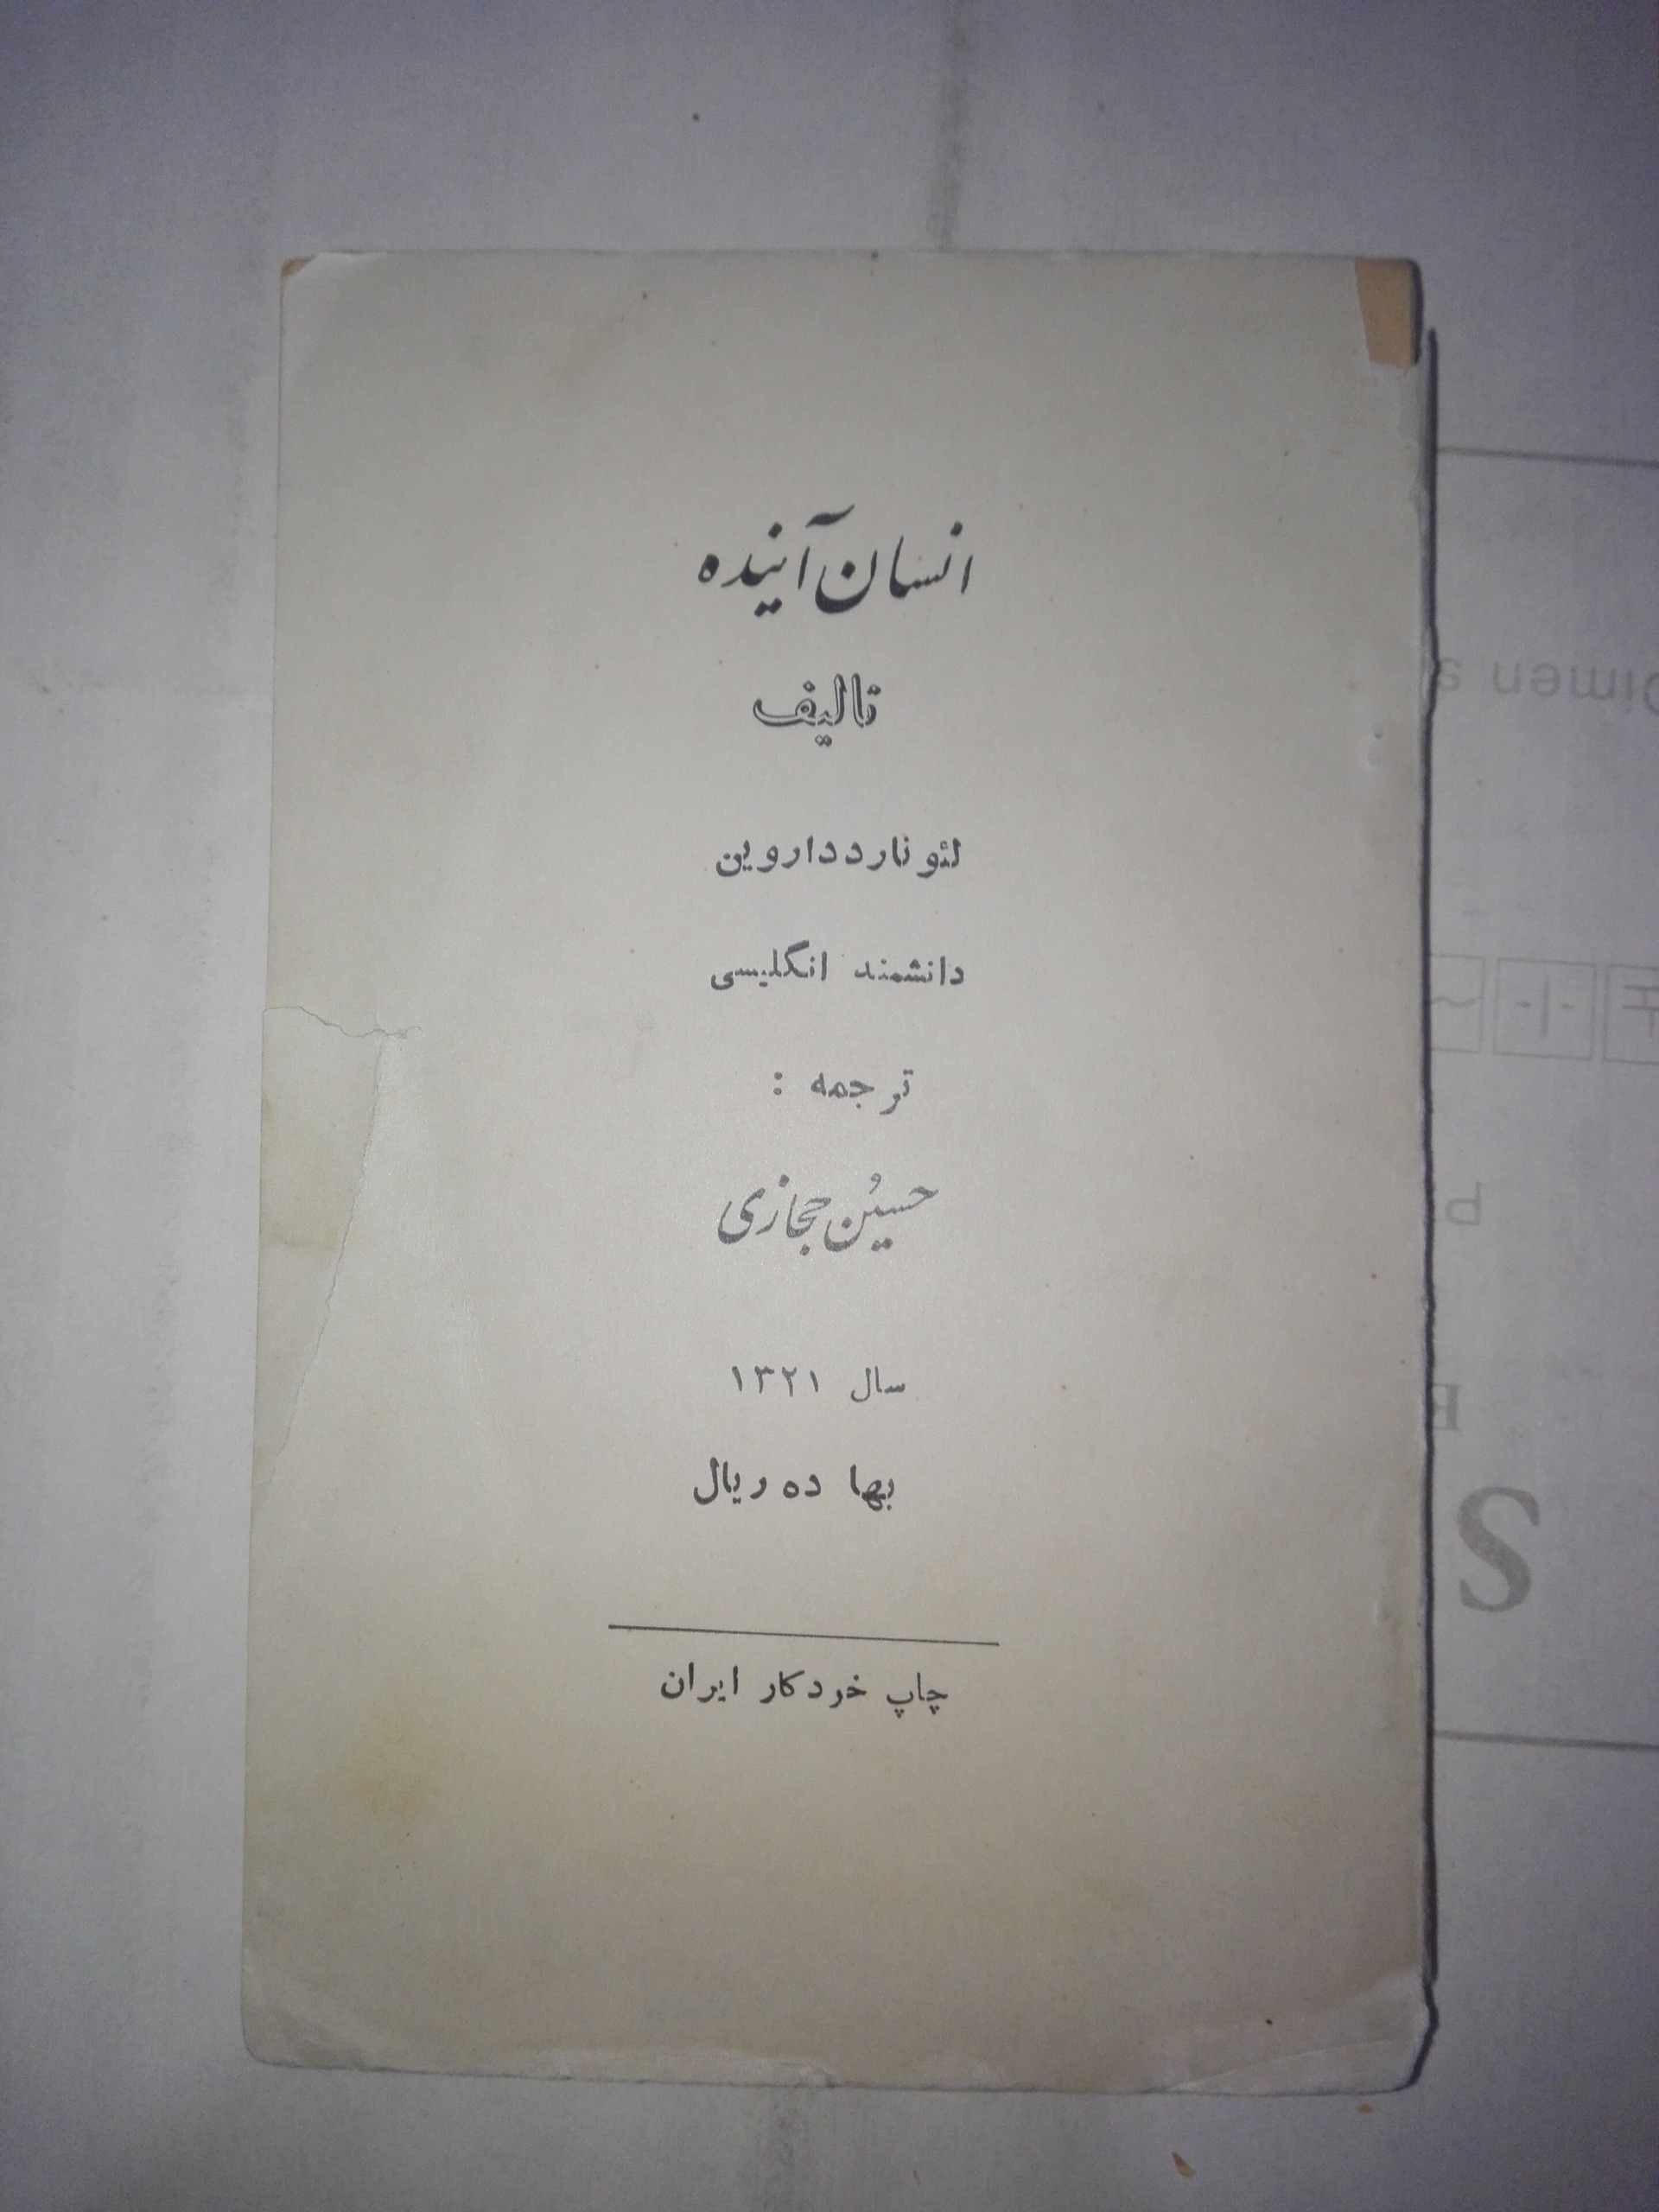 انسان آینده
تالیف
لئو نارد داروین
دانشمند انگلیسی
ترجمه :
حسین حجازی
سال ۱۳۲۱
بها ده ریال
چاپ خودکار ایران
Dimen s
P
E
S